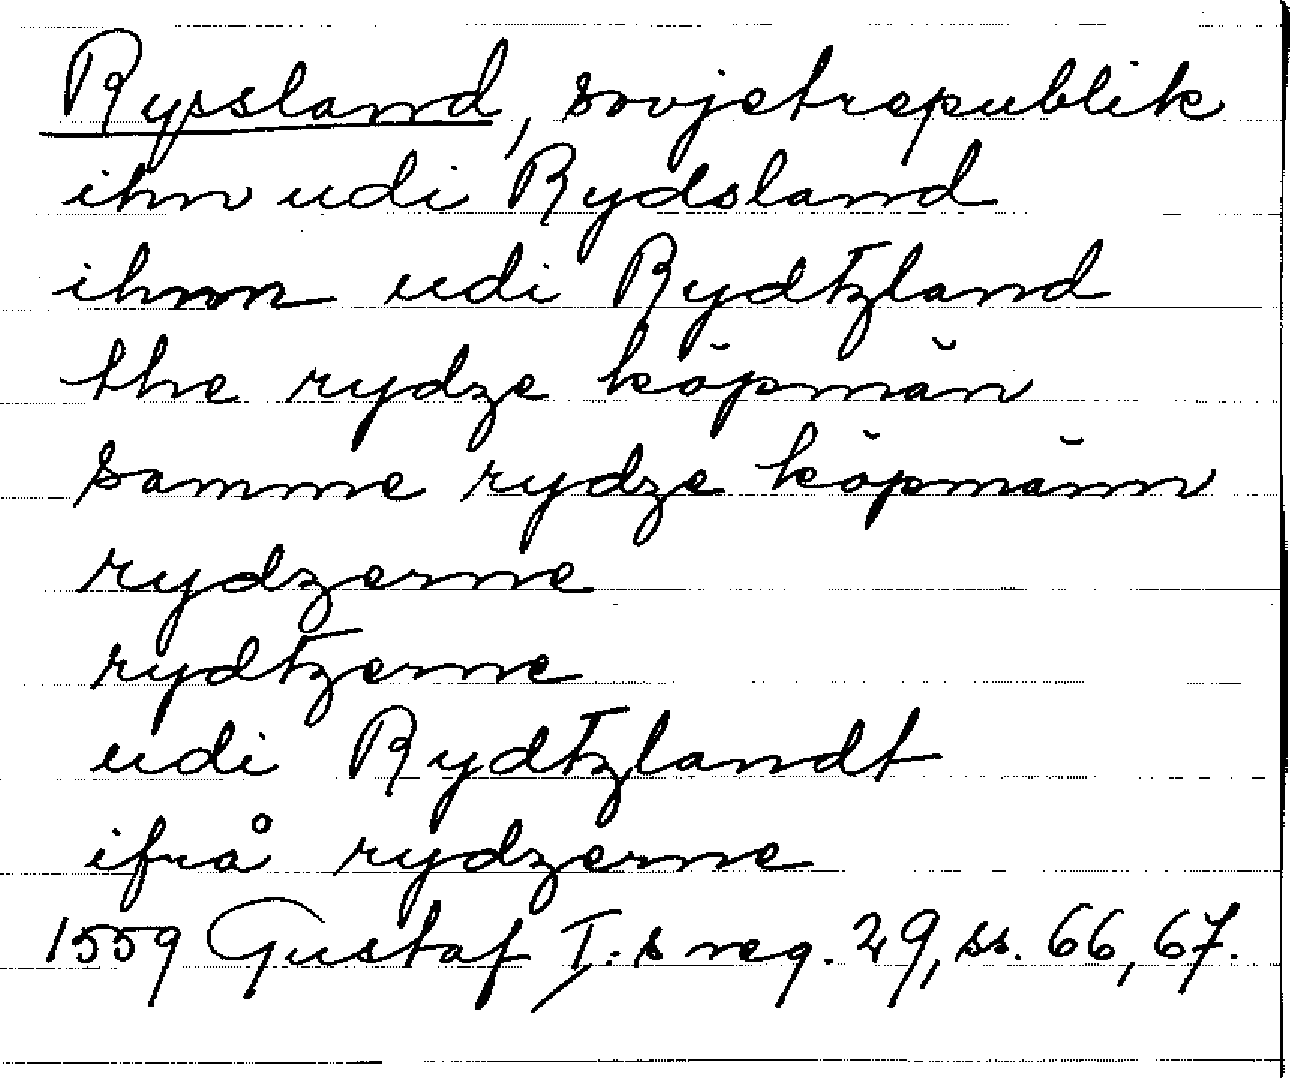 Ryssland, sovjetrepublik
ihn udi Rydsland
ihnn udi Rydtzland
the rydze köpmän
samme rydze köpmänn
rydzerne
rydtzerne
udi Rydtzlandt
ifrå rydzerne
1559 Gustaf I:s reg. 29, ss. 66, 67.